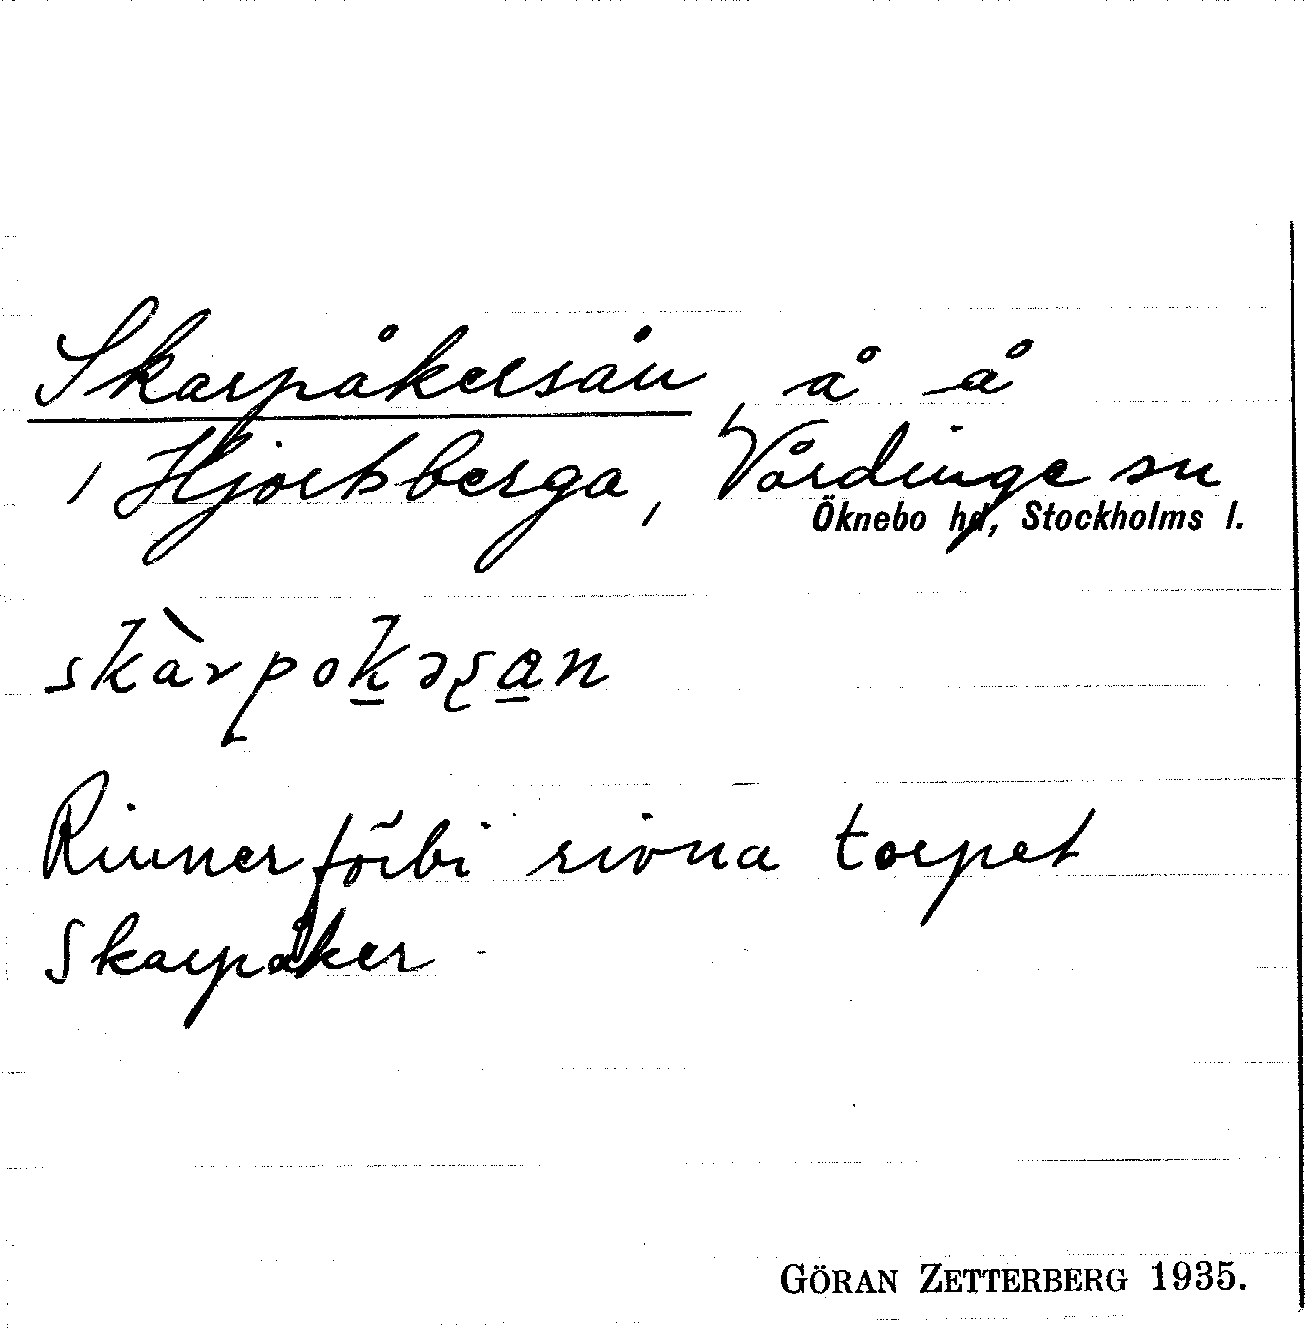 Skarpåkersån å å
i Hjortsberga, Vårdinge sn
Öknebo hd, Stockholms l.
skàrpokəʂan
Rinner förbi rivna torpet
Skarpåker
GÖRAN ZETTERBERG 1935.